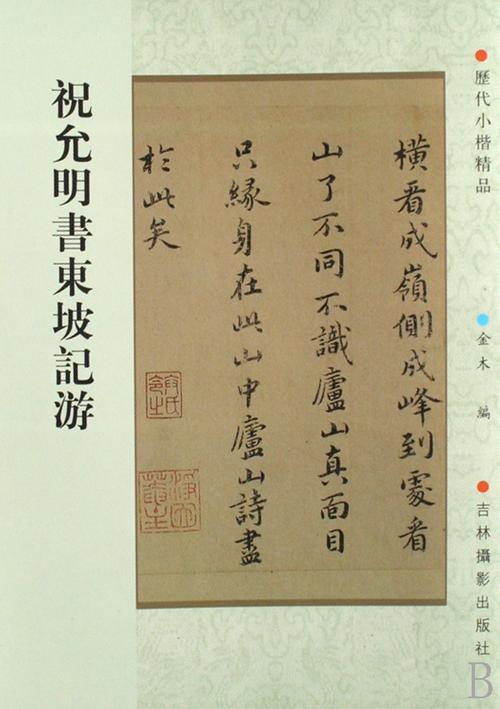 歷代小楷精品
金木 編
吉林攝影出版社
橫看成嶺側成峰到處看
山了不同不識廬山真面目
只緣身在此山中廬山詩盡
於此矣
祝允明書東坡記游
B